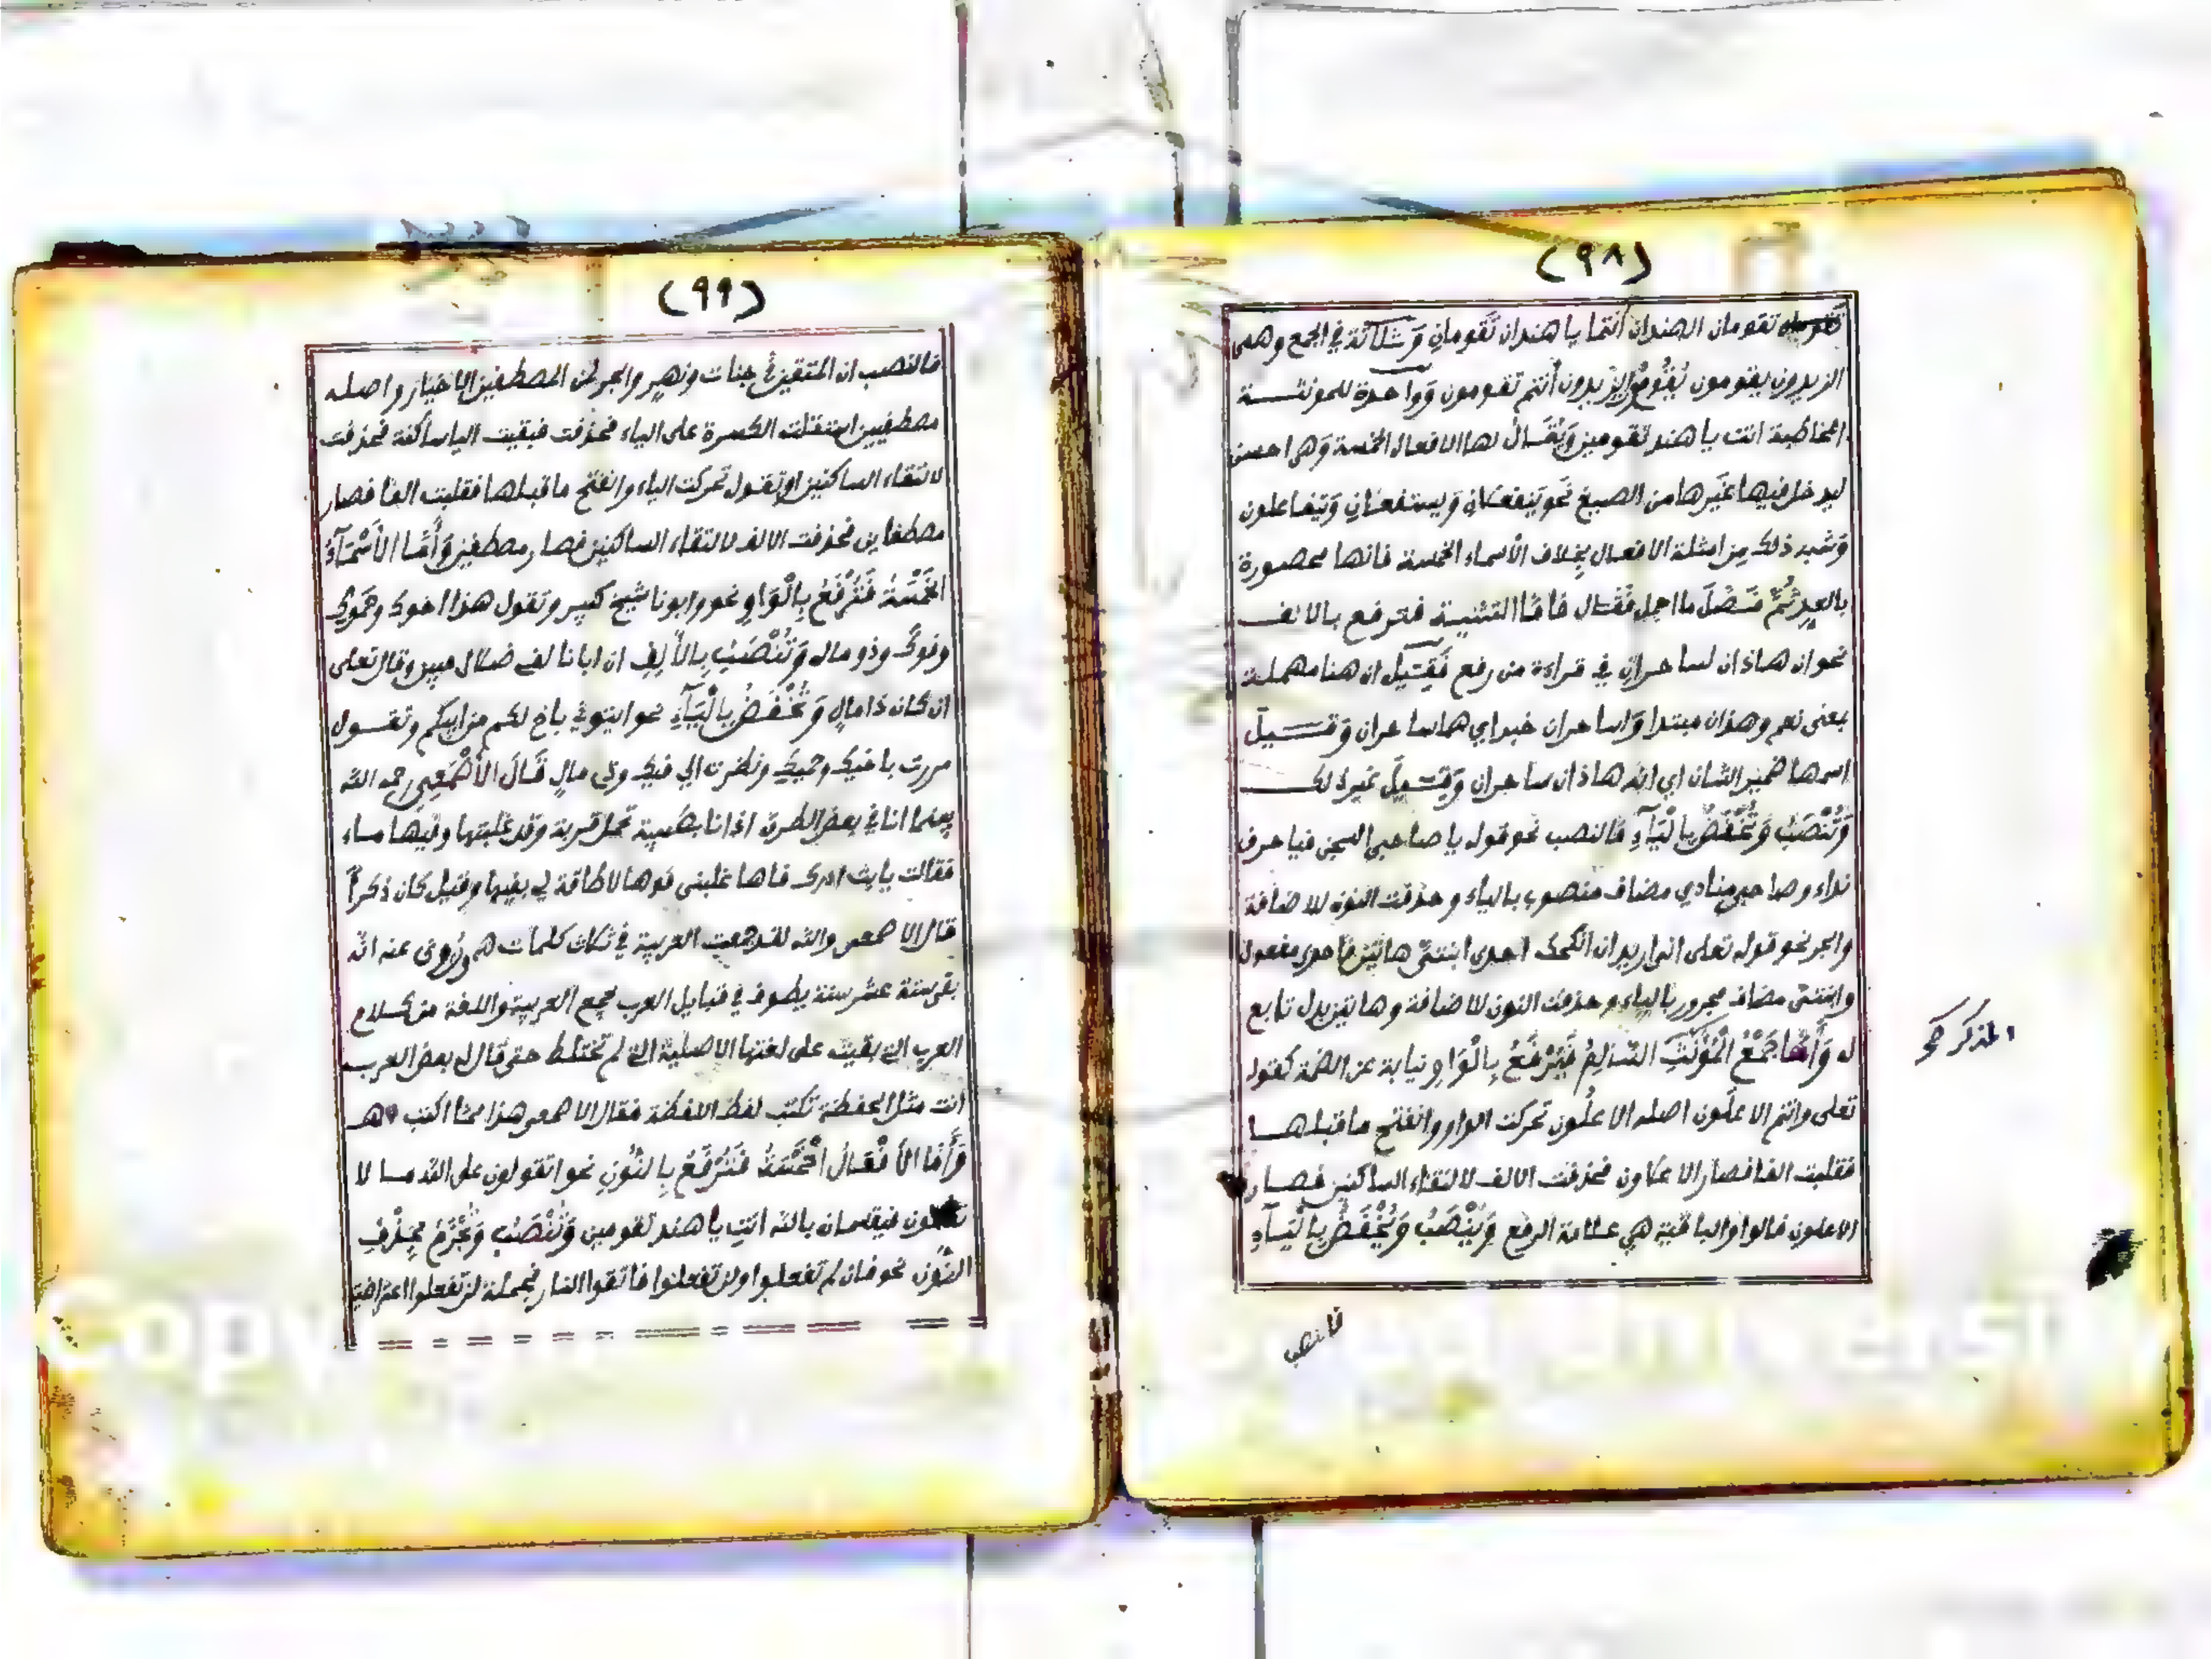 (٩٨)
تقومان الهندان أنتما يا هندان تَقومانِ وَثلاثة في الجمع وهى
الزيدون يقومون يَقُومُ الزيدون أنتم تقومون وَواحدة للمونثة
المخاطبة انت يا هند تقومين وَيُقَالُ لها الافعال الخمسة وَهى احسن
ليدخل فيها غَيرها من الصيغ نَحو يَنفعلانِ وَيستفعلانِ وَتيفاعلون
وَشبه ذلك مِن امثلة الافعال بِخِلاف الأسماء الخمسة فانها محصورة
بالعدِ ثُمَّ فَصَّلَ ما اجمل فَقَال فاَمَّا التثنية فترفع بالالف
نحو ان هاذان لساحرانِ في قراءة من رفع فَقِيَل ان هنا مهملة
بمعنى نعم وهذان مبتدا وَلساحران خبر اي هما ساحران وَقيل
اسمها ضمير الشان اي انه هاذان ساحران وَقيل غير ذلك
وَتُنْصَبُ وَتُخْفَضُ بِالْيَآءِ فالنصب نحو قوله يا صاحبي السجن فيا حرف
نداء وصاحبي منادي مضاف منصوب بالياء وحذفت النون للاضافة
والجر نحو قوله تعلى انى اريد ان انكحك احدى ابنتيَّ هاتين فاحدى مفعول
وابنتىّ مضاف مجرور بالياء وحذفت النون للاضافة وهاتين بدل تابع
له وَأَمَّا جَمْعُ الْمُؤَنَّثِ السَّالِمُ فَيُرْفَعُ بِالْوَاوِ نيابة عن الضمة كقوله
المذكر صح
تعلى وانتم الاعلَون اصله الاعلُون تحركت الواو وانفتح ما قبلها
فقلبت الفا فصار الاعلاون فحذفت الالف لالتقاء الساكنين فصار
الاعلون فالواو الباقية هي علامة الرفع وَيُنْصَبُ وَيُخْفَضُ بِالْيَآءِ
فالنصب
(٩٩)
فالنصب ان المتقين في جنات ونهر والجر لمن المصطفين الاخيار واصله
مصطفيين استثقلت الكسرة على الياء فحذفت فبقيت الياء ساكنة فحذفت
لالتقاء الساكنين او تقول تحركت الياء وانفتح ما قبلها فقلبت الفا فصار
مصطفاين فحذفت الالف لالتقاء الساكنين فصار مصطفين وَأَمَّا الأَسْمَآءُ
الخَمْسَةُ فَتُرْفَعُ بِالْوَاوِ نحو وابونا شيخ كبير وتقول هذا اخوك وحَموك
وفوك وذو مال وَتُنْصَبُ بِالأَلِفِ ان ابانا لفي ضلال مبين وقال تعلى
ان كان ذا مالٍ وَتُخْفَضُ بِالْيَآءِ نحو ايتوني باخ لكم من ابيكم وتقول
مررت باخيك وحميك ونظرت الي فيك وذى مالٍ قَالَ الأَصْمَعِي رحمه الله
بينما انا في بعض الطرق اذا انا بصبية تحمل قربة وقد غلبتها وفيها ماء
فقالت يا ابت ادرك فاها غلبنى فوها لا طاقة لي بفيها وقيل كان ذكراً
قال الاصمعى والله لقد جمعت العربية في ثلاث كلمات هـ وَيُروى عنه انه
بقى ستة عشر سنة يطوف في قبايل العرب يجمع العربية واللغة من كلام
العرب التي بقيت على لغتها الاصلية التي لم تختلط حتى قال له بعض العرب
انت مثل الحفظة تكتب لفظ اللفظة فقال الاصمعى هذا مما اكتب هـ
وَأَمَّا الأَفْعَالُ الْخَمْسَةُ فَتُرْفَعُ بِالنُّونِ نحو اتقولون على الله ما لا
تعلمون فيقسمان بالله انتِ يا هند تقومين وَتُنْصَبُ وَتُجْزَمُ بِحَذْفِ
النُّونِ نحو فان لم تفعلوا ولن تفعلوا فاتقوا النار فجملة لن تفعلوا اعتراضية